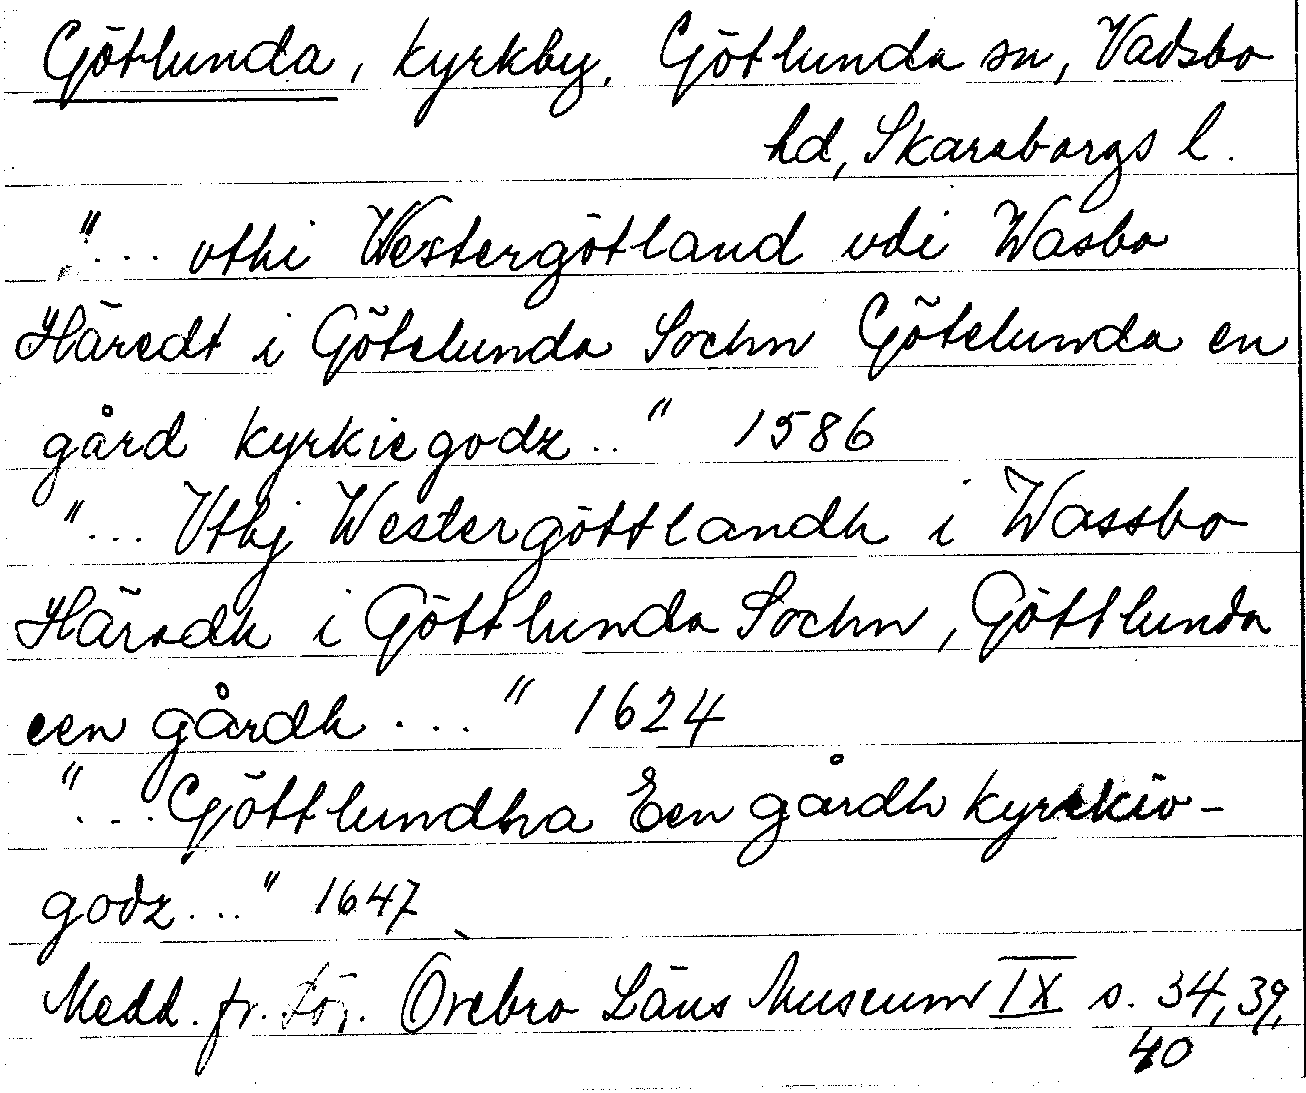 Götlunda, kyrkby, Götlunda sn, Vadsbo
hd, Skaraborgs l.
"... vthi Westergötland vdi Wasbo
Häredt i Götelunda Sochn Götelunda en
gård kyrkiegodz.." 1586
"... Vthj Westergöttlandh i Wassbo
Häradh i Göttlunda Sochn, Göttlunda
een gårdh ..." 1624
"... Göttlundha Een gårdh kyrckio-
godz..." 1647
Medd. fr. för. Örebro Läns Museum IX s. 34, 39,
40